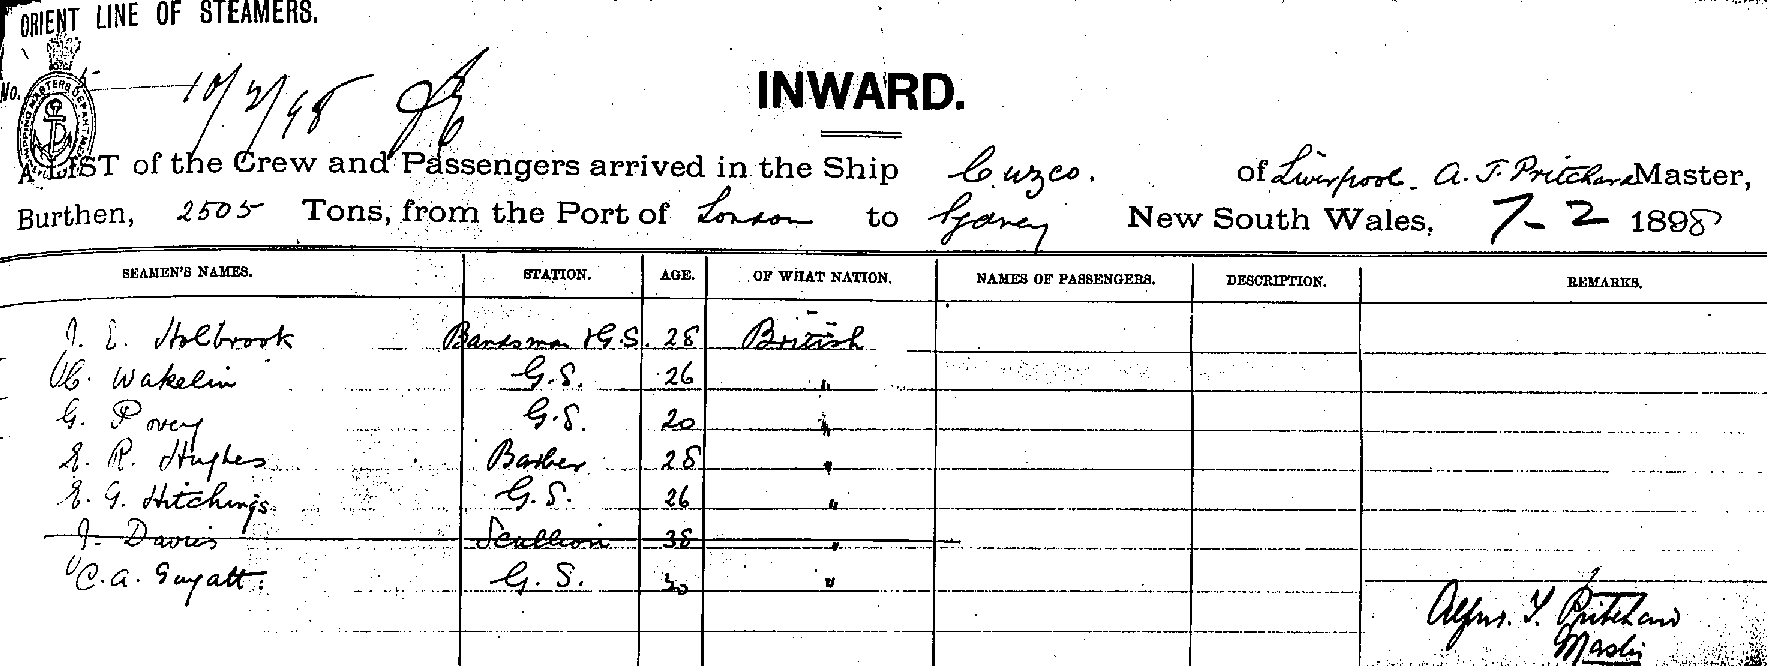 ORIENT LINE OF STEAMERS.
No. 10/2/98
SHIPPING MASTERS DEPARTMENT
INWARD.
A LIST of the Crew and Passengers arrived in the Ship Cuzco. of Liverpool. A. J. Pritchard Master,
Burthen, 2505 Tons, from the Port of London to Sydney New South Wales, 7-2 1898
SEAMEN'S NAMES. STATION. AGE. OF WHAT NATION. NAMES OF PASSENGERS. DESCRIPTION. REMARKS.
J. E. Holbrook Bandsman & G.S. 28 British
C. Wakelin G.S. 26 "
G. Povey G.S. 20 "
E. R. Hughes Barber 28 "
E. G. Hitchings G.S. 26 "
J. Davis Scullion 38 "
C. A. Guyatt. G. S. 30 "
Pritchard
Master